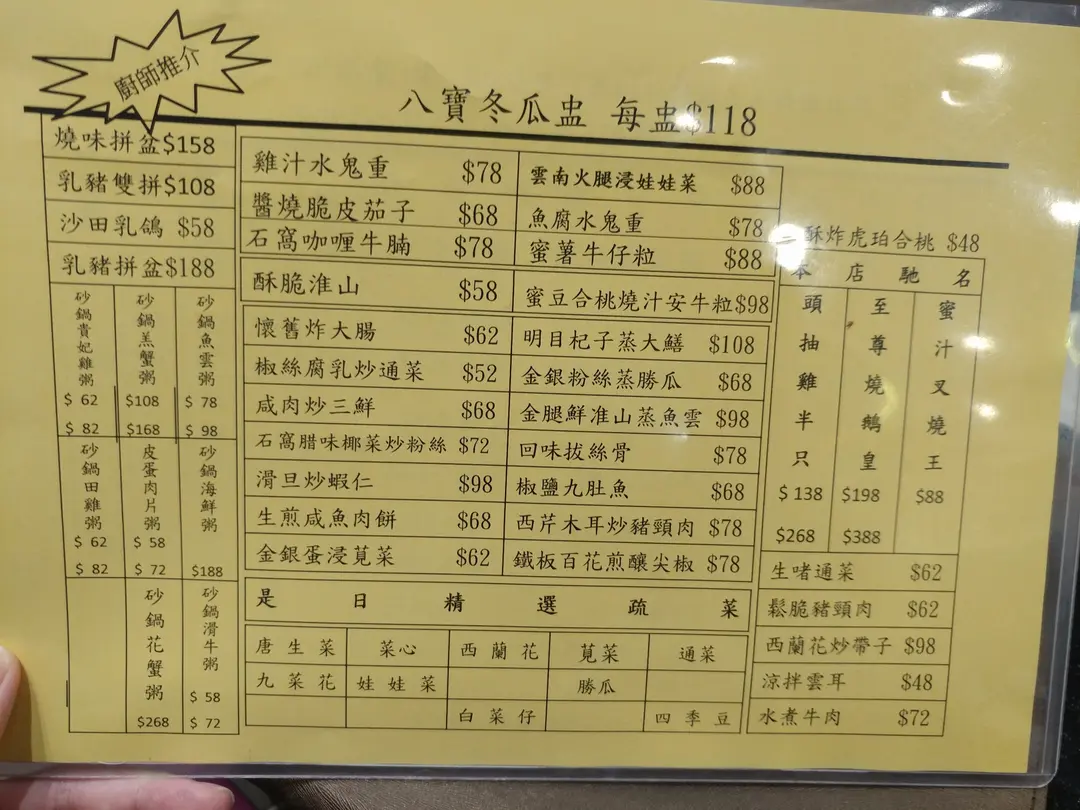 廚師推介
八寶冬瓜盅 每盅$118
燒味拼盆$158
乳豬雙拼$108
沙田乳鴿 $58
乳豬拼盆$188
砂鍋貴妃雞粥 $ 62 $ 82
砂鍋羔蟹粥 $108 $168
砂鍋魚雲粥 $ 78 $ 98
砂鍋田雞粥 $ 62 $ 82
皮蛋肉片粥 $ 58 $ 72
砂鍋海鮮粥 $188
砂鍋花蟹粥 $268
砂鍋滑牛粥 $ 58 $ 72
雞汁水鬼重 $78
醬燒脆皮茄子 $68
石窩咖喱牛腩 $78
酥脆淮山 $58
懷舊炸大腸 $62
椒絲腐乳炒通菜 $52
咸肉炒三鮮 $68
石窩腊味椰菜炒粉絲 $72
滑旦炒蝦仁 $98
生煎咸魚肉餅 $68
金銀蛋浸莧菜 $62
雲南火腿浸娃娃菜 $88
魚腐水鬼重 $78
蜜薯牛仔粒 $88
蜜豆合桃燒汁安牛粒$98
明目杞子蒸大鱔 $108
金銀粉絲蒸勝瓜 $68
金腿鮮准山蒸魚雲 $98
回味拔絲骨 $78
椒鹽九肚魚 $68
西芹木耳炒豬頸肉 $78
鐵板百花煎釀尖椒 $78
是日精選疏菜
唐生菜 菜心 西蘭花 莧菜 通菜
九菜花 娃娃菜 勝瓜
白菜仔 四季豆
酥炸虎珀合桃 $48
本店馳名
頭抽雞半只 $ 138 $268
至尊燒鵝皇 $198 $388
蜜汁叉燒王 $88
生啫通菜 $62
鬆脆豬頸肉 $62
西蘭花炒帶子 $98
涼拌雲耳 $48
水煮牛肉 $72